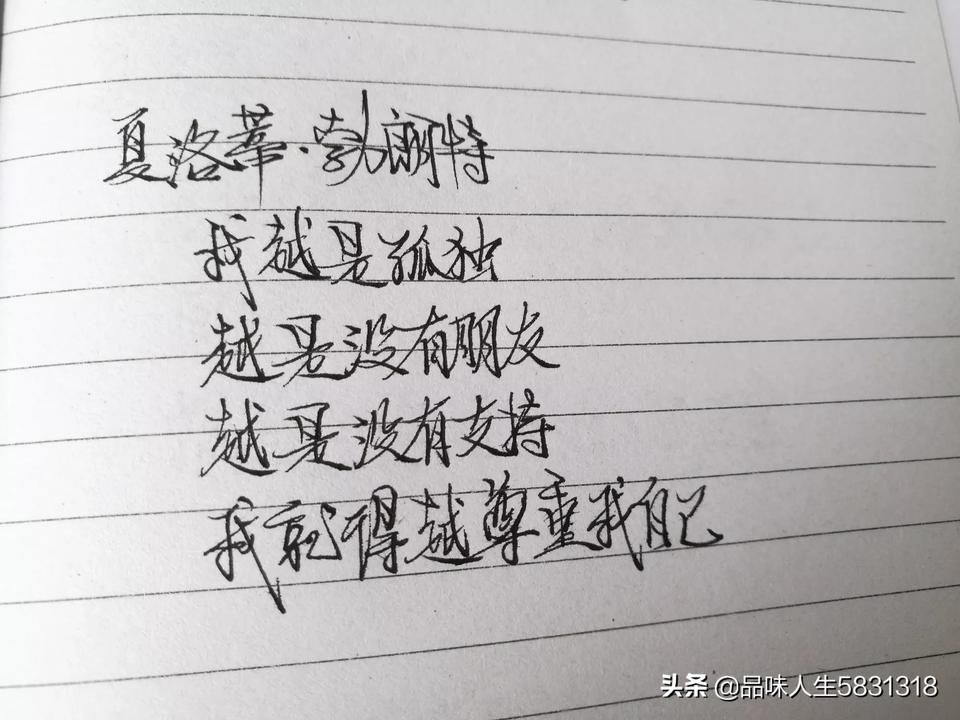 夏洛蒂·勃朗特
我越是孤独
越是没有朋友
越是没有支持
我就得越尊重我自己
头条 @品味人生5831318